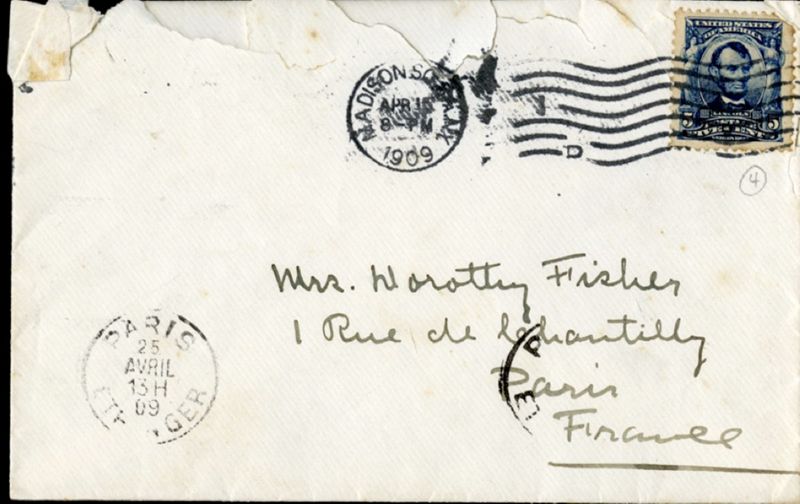 UNITED STATES
OF AMERICA
LINCOLN
POSTAGE
5 FIVE CENTS 5
MADISON SQ. STA. N.Y.
APR 15
8- PM
1909
D
4
Mrs. Dorothy Fisher
1 Rue de Chantilly
Paris
France
PARIS
25
AVRIL
13H
09
ETRANGER
P
E